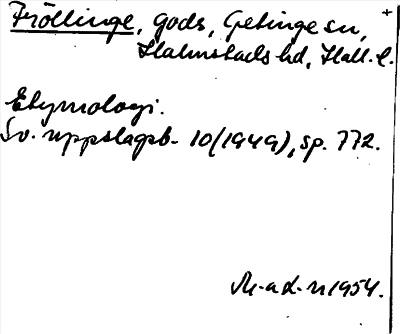 Fröllinge, gods, Getinge sn, +
Halmstads hd, Hall. l.
Etymologi.
Sv. uppslagsb. 10 (1949), sp. 772.
M-ad. n 1954.